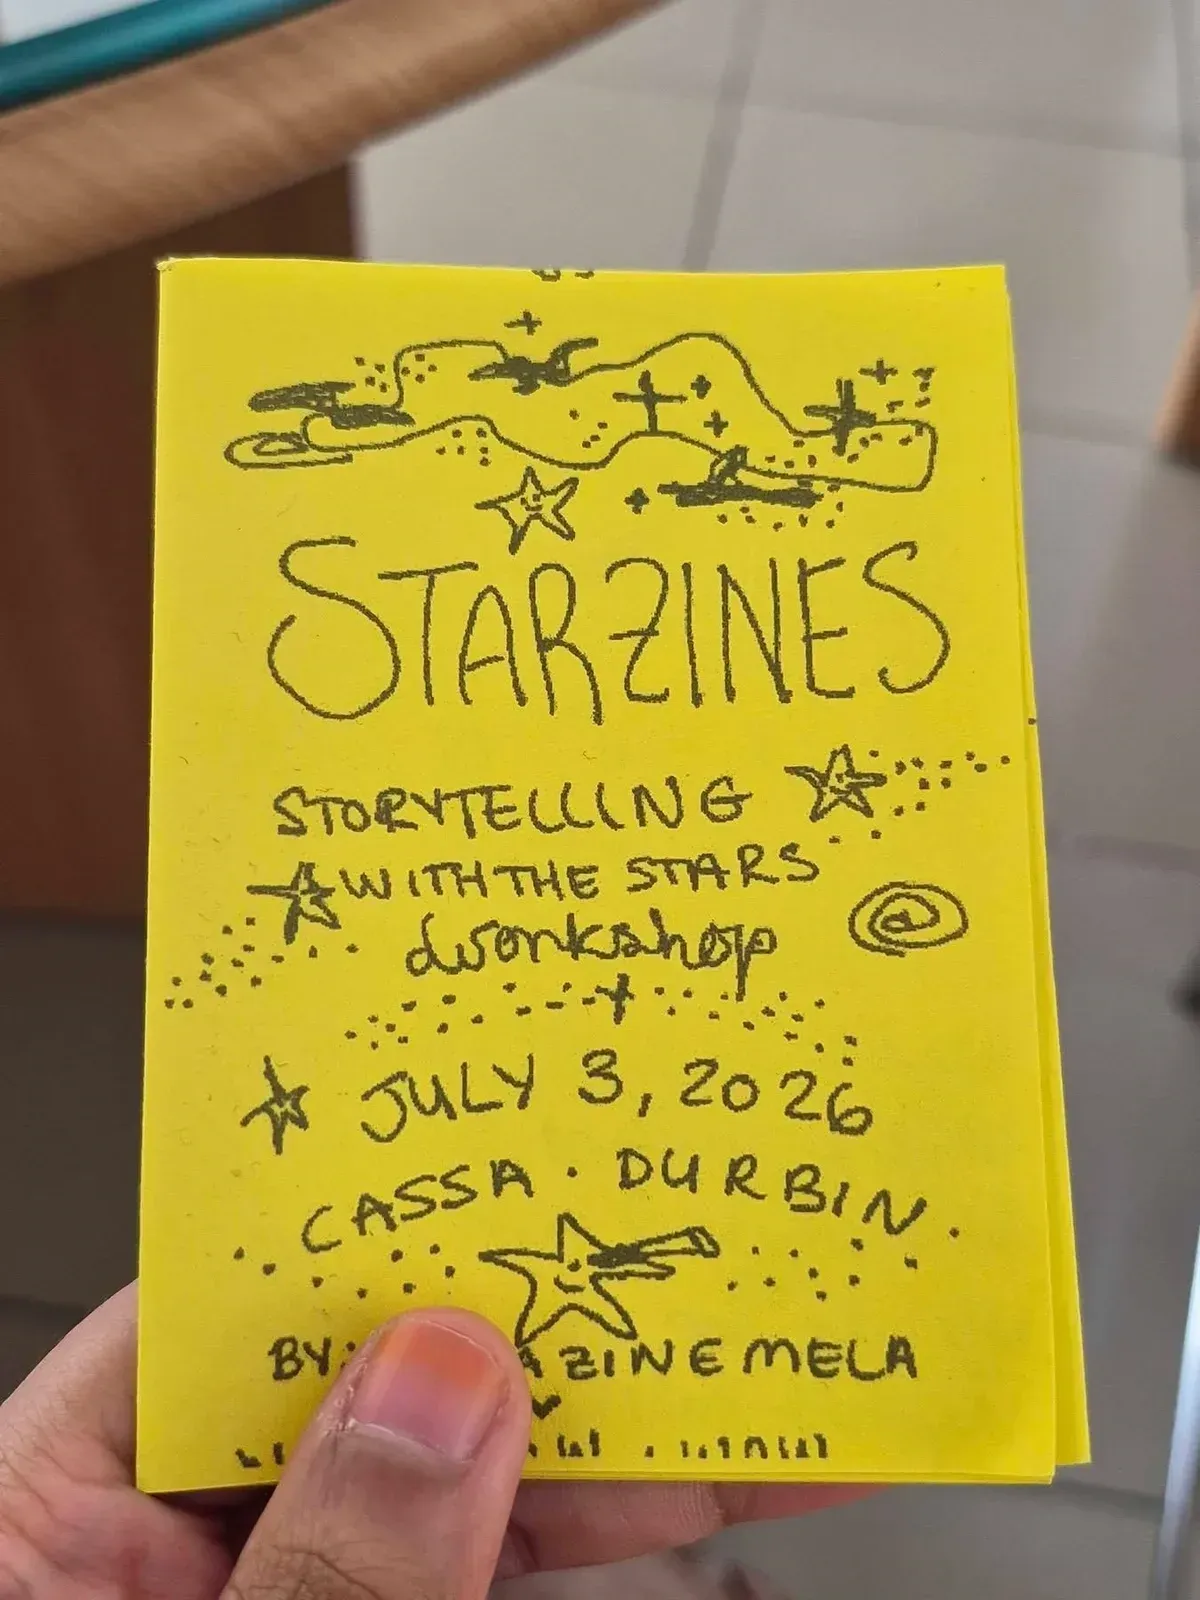 STARZINES
STORYTELLING
WITH THE STARS
workshop
JULY 3, 2026
CASSA · DURBIN.
BY: AZINE MELA